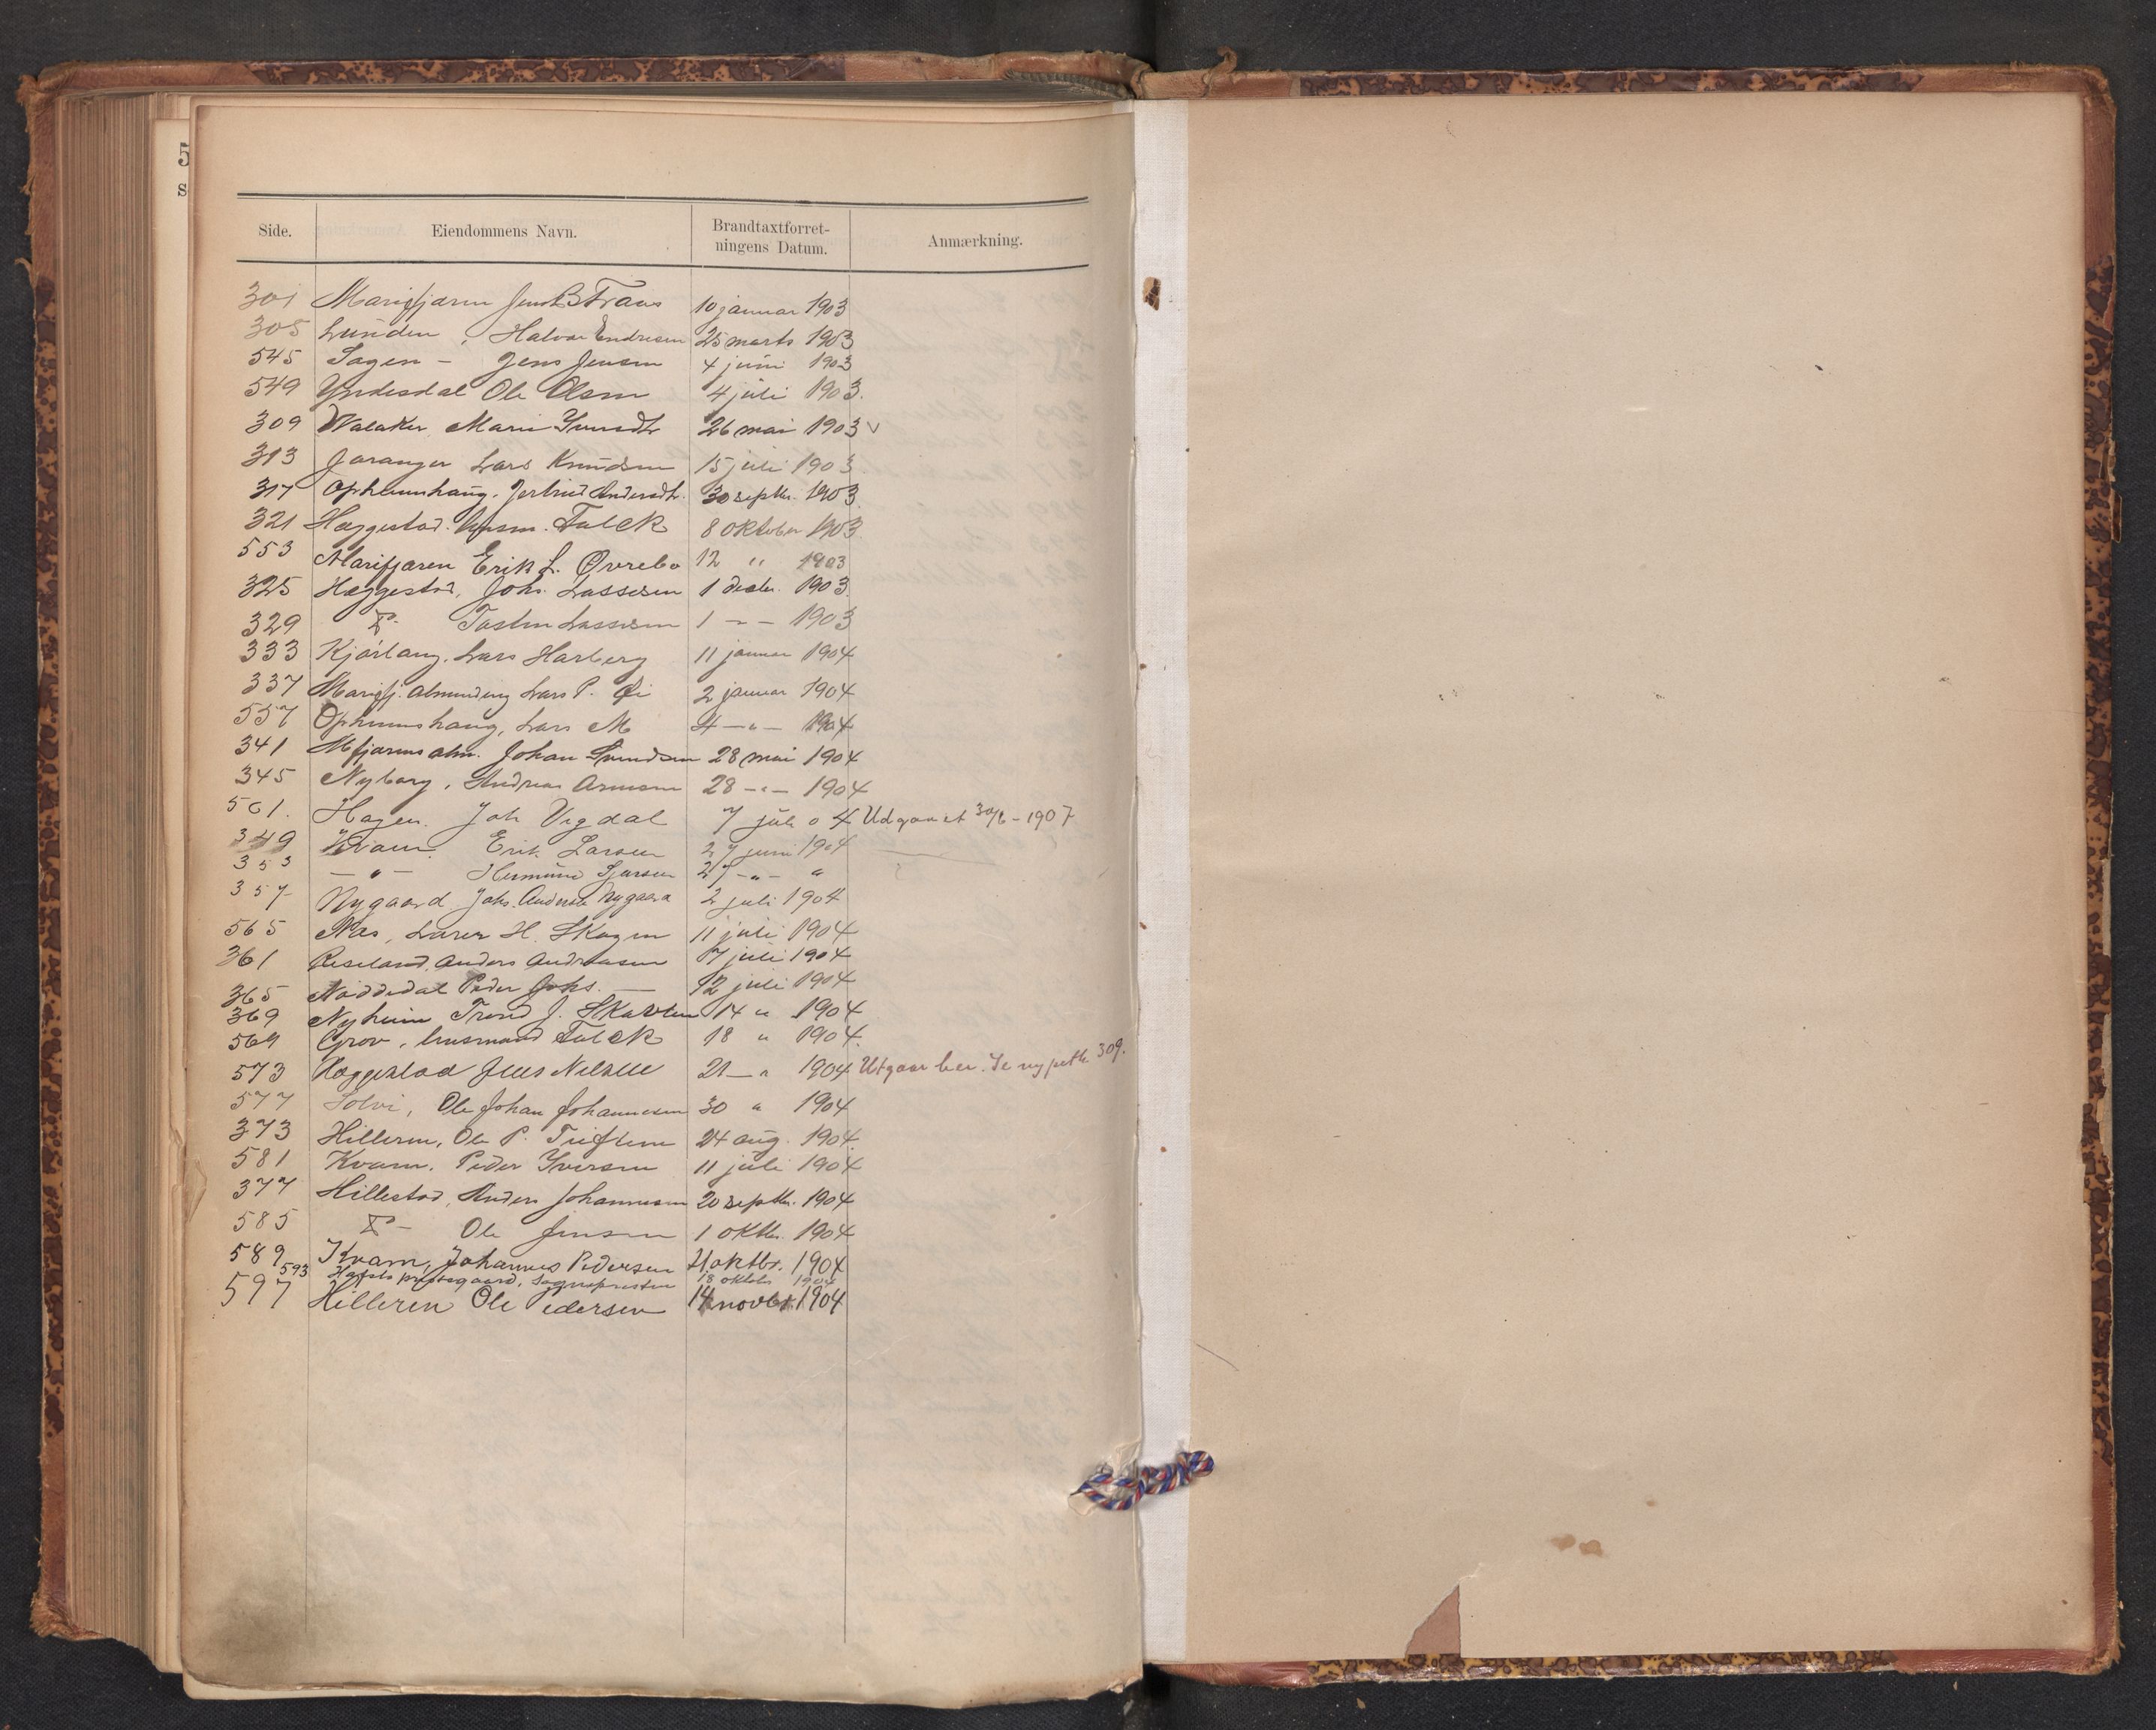 5
s
Side. Eiendommens Navn. Brandtaxtforret-
ningens Datum. Anmærkning.
301 Marifjæren Jens B Traus 10 januar 1903
305 Lunden, Halvor Endresen 25 marts 1903
545 Sagen - Jens Jensen 4 juni 1903
549 Yndesdal Ole Olsen 4 juli 1903.
309 Walaker Mari 26 mai 1903 v
313 Joranger Lars Knudsen 15 juli 1903
317 Ophеimshaug. Jertrud Andersdtr. 30 septbr. 1903
321 Hæggestad. Falck 8 oktober 1903
553 Marifjæren Erik L. Øvrebø 12 " 1903
325 Hæggestad, Johs. Lassesen 1 decbr. 1903
329 Do. Torsten Lassesen 1 - - 1903
333 Lars Harberg 11 januar 1904
337 Marifj. almending Lars P. Øi 2 januar 1904
557 Opheimshaug, Lars M 4 -"- 1904
341 Mfjærens alm. Johan Svendsen 28 mai 1904
345 Nyborg, Andreas 28 -"- 1904
561. Hagen. Joh Vigdal 7 juli 04 Udgaaet 30/6 - 1907
349 Kvam. Erik Larsen 27 juni 1904
353 -"- Hermund Sjursen 27 -"- "
357 Nygaard Johs. Nygaard 2 juli 1904
565 Næs, Lærer H. Skagen 11 juli 1904
361 Anders Andreasen 7 juli 1904
365 Peder Johs. — 12 juli 1904
369 Nyheim Trond J. 14 " 1904
569 Grov, Falck 18 " 1904.
573 Hæggestad Jens Nilsen 21 - " 1904 Utgaar her. Se ny potk 309.
577 Solvi, Ole Johan Johannesen 30 " 1904
373 Hilleren, Ole P. 24 aug. 1904
581 Kvam. Peder Iversen 11 juli 1904
377 Hillestad, Anders Johannesen 20 septbr. 1904
585 Do- Ole Jensen 1 oktbr. 1904
589 Kvam, Johannes Pedersen 4 oktbr. 1904
593 Hafslo præstegaard, Sognepresten 18 oktober 1904
597 Hilleren Ole Pedersen 14 novbr 1904